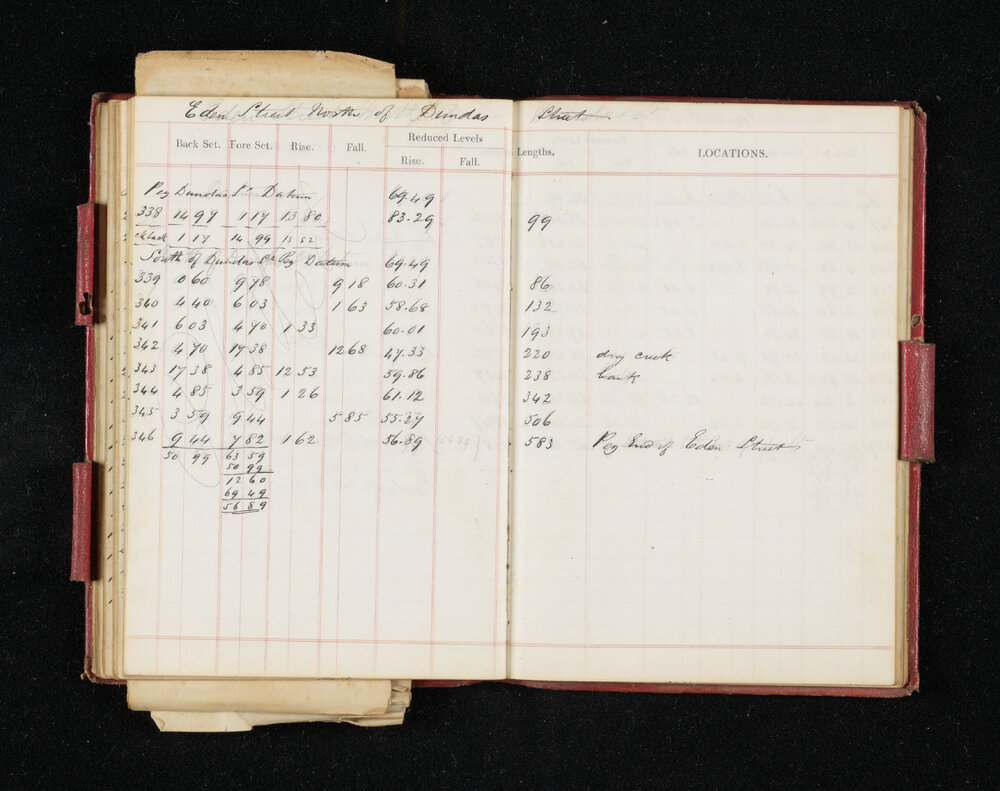 Eden Street North of Dundas Street
Back Set. Fore Set. Rise. Fall. Reduced Levels Lengths. LOCATIONS.
Rise. Fall.
Peg Dundas St Datum 69.49
338 14 97 1 17 13 80 83.29 99
ckback 1 17 14 99 13 82
South of Dundas St Peg Datum 69.49
339 0 60 9 78 9 18 60.31 86
340 4 40 6 03 1 63 58.68 132
341 6 03 4 70 1 33 60.01 193
342 4 70 17 38 12 68 47.33 220 dry creek
343 17 38 4 85 12 53 59.86 238 bank
344 4 85 3 59 1 26 61.12 342
345 3 59 9 44 5 85 55.27 506
346 9 44 7 82 1 62 56.89 (56.89) 583 Peg End of Eden Street
50 99 63 59
50 99
12 60
69 49
56 89